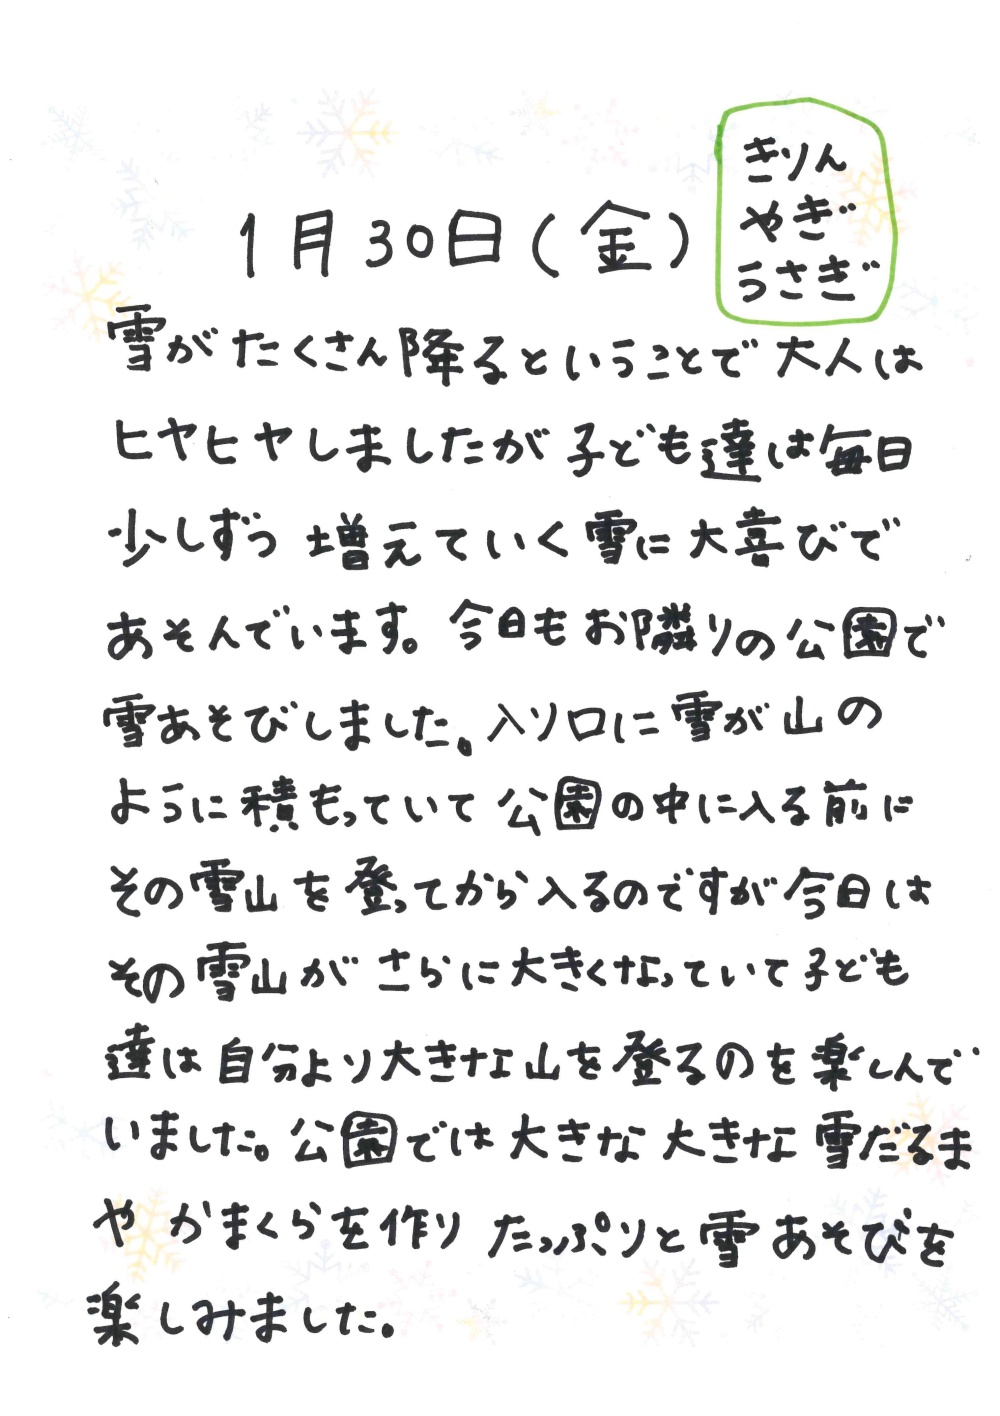 きりん
やぎ
うさぎ
1月30日(金)
雪がたくさん降るということで大人は
ヒヤヒヤしましたが子ども達は毎日
少しずつ増えていく雪に大喜びで
あそんでいます。今日もお隣りの公園で
雪あそびしました。入り口に雪が山の
ように積もっていて公園の中に入る前に
その雪山を登ってから入るのですが今日は
その雪山がさらに大きくなっていて子ども
達は自分より大きな山を登るのを楽しんで
いました。公園では大きな大きな雪だるま
やかまくらを作りたっぷりと雪あそびを
楽しみました。